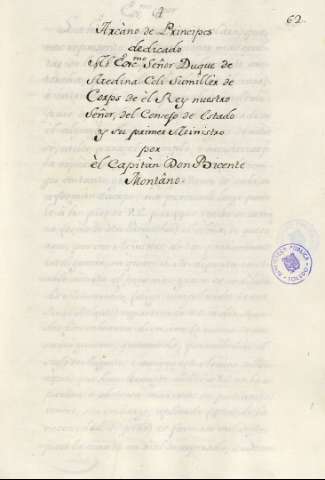 62.
Arcàno de Principes
dedicado
Al Exc.mo Señor Duque de
Medina Celi Sumillèr de
Corps de èl Rey nuestro
Señor, del Consejo de Estado
y su primer Ministro
por
èl Capitàn Don Vicente
Montàno.
BIBLIOTECA PUBLICA
TOLEDO